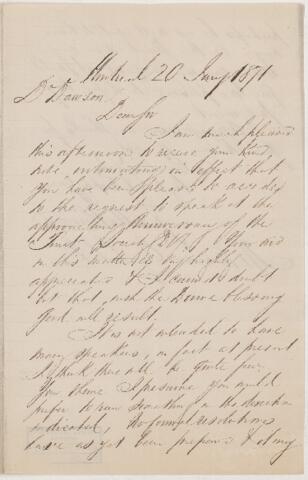 Montreal 20 Jany 1871
Dr Dawson
Dear Sir
I am much pleased
this afternoon to receive your kind
note, in effect that
you have been pleased to accede
to the request to speak at the
approaching Anniversary of the
Tract Society 26th. Your aid
in this matter is highly
appreciated & I cannot doubt
but that, with the Divine blessing
Good will result.
It is not intended to have
many speakers, in fact at present
I think there will be quite few.
You I presume you would
prefer to say something in the direction
indicated, no formal resolutions
have as yet been prepared & it may